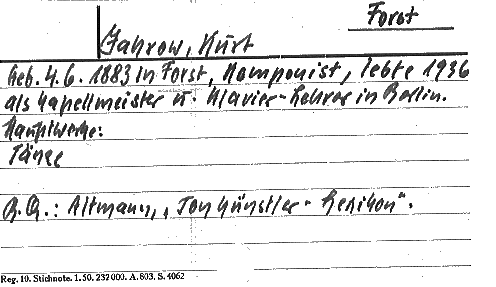 Forst
Jahrow, Kurt
Geb. 4.6. 1883 in Forst, Komponist, lebte 1936
als Kapellmeister u. Klavier-Lehrer in Berlin.
Hauptwerke:
Tänze
B.Q.: Altmann, „Tonkünstler-Lexikon".
Reg. 10. Stichnote. 1. 50. 232000. A. 803. S. 4062